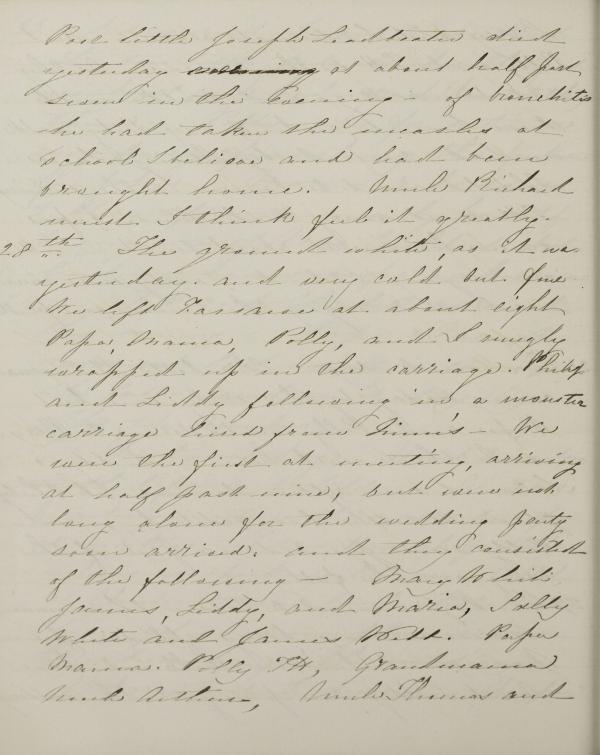 Poor little Joseph Leadbeater died
yesterday evening at about half past
seven in the Evening - of bronchitis
he had taken the measles at
school I believe and had been
brought home. Uncle Richard
must I think feel it greatly.
28th. The ground white, as it was
yesterday. and very cold but fine
We left at about eight
Papa, Mama, Polly, and I snugly
wrapped up in the carriage. Philip
and Liddy following in a monster
carriage hired from - We
were the first at meeting, arriving
at half past nine, but were not
long alone for the wedding party
soon arrived. and they consisted
of the following - Mary White
James, Liddy, and Maria, Sally
White and James Webb. Papa
Mama. Polly TH, Grandmama
Uncle Arthur, Uncle Thomas and